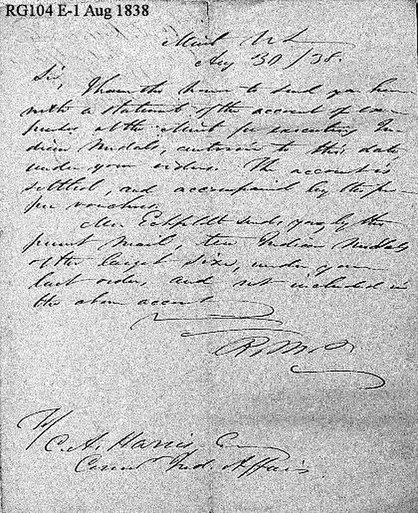 RG104 E-1 Aug 1838
Mint U S
Aug 30 / 38.
Sir, I have the honor to send you here
with a statement of the account of ex
penses at the Mint for executing In
dian Medals, anterior to this date,
under your orders. The account is
settled, and accompanied by the pro
per vouchers.
Mr. Eckfeldt sends you, by the
present mail, ten Indian Medals
of the largest size, under your
last order, and not included in
the above account
R. M. P.
To
C. A. Harris
Comr. Ind. Affairs.